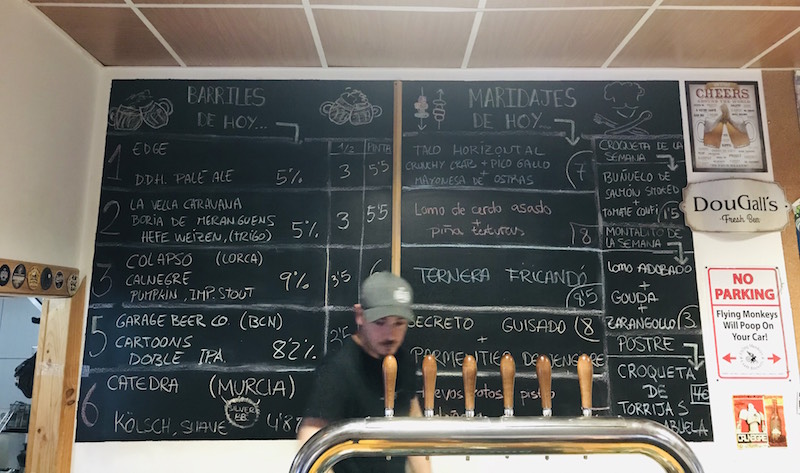 BARRILES
DE HOY...
1/2
PINTA
1
EDGE
DDH. PALE ALE 5% 3 5'5
2
LA VELLA CARAVANA
BORIA DE MERANGUENS
HEFE WEIZEN, (TRIGO) 5% 3 5'5
3
COLAPSO (LORCA)
CALNEGRE
PUMPKIN, IMP. STOUT 9% 3'5 6
5
GARAGE BEER CO. (BCN)
CARTOONS
DOBLE IPA 8'2%
6
CATEDRA (MURCIA)
SILVER
BB.
KÖLSCH, SUAVE 4'8
MARIDAJES
DE HOY...
TACO HORIZONTAL
CRUNCHY CRABS + PICO GALLO
+
MAYONESA DE OSTRAS 7
Lomo de cerdo asado
+
piña texturas 8
TERNERA FRICANDÓ
8'5
SECRETO GUISADO 8
+
PARMENTIER DE JENGIBRE
Huevos rotos pisto
CROQUETA DE LA
SEMANA
BUÑUELO DE
SALMÓN SMOKED
+
TOMATE CONFI 1'5
MONTADITO DE
LA SEMANA
LOMO ADOBADO
+
GOUDA
+
ZARANGOLLO 3
POSTRE
4€
CROQUETA
DE
TORRIJAS
ABUELA
CHEERS
DouGall's
Fresh Beer
NO
PARKING
Flying Monkeys
Will Poop On
Your Car!
CALNEGRE